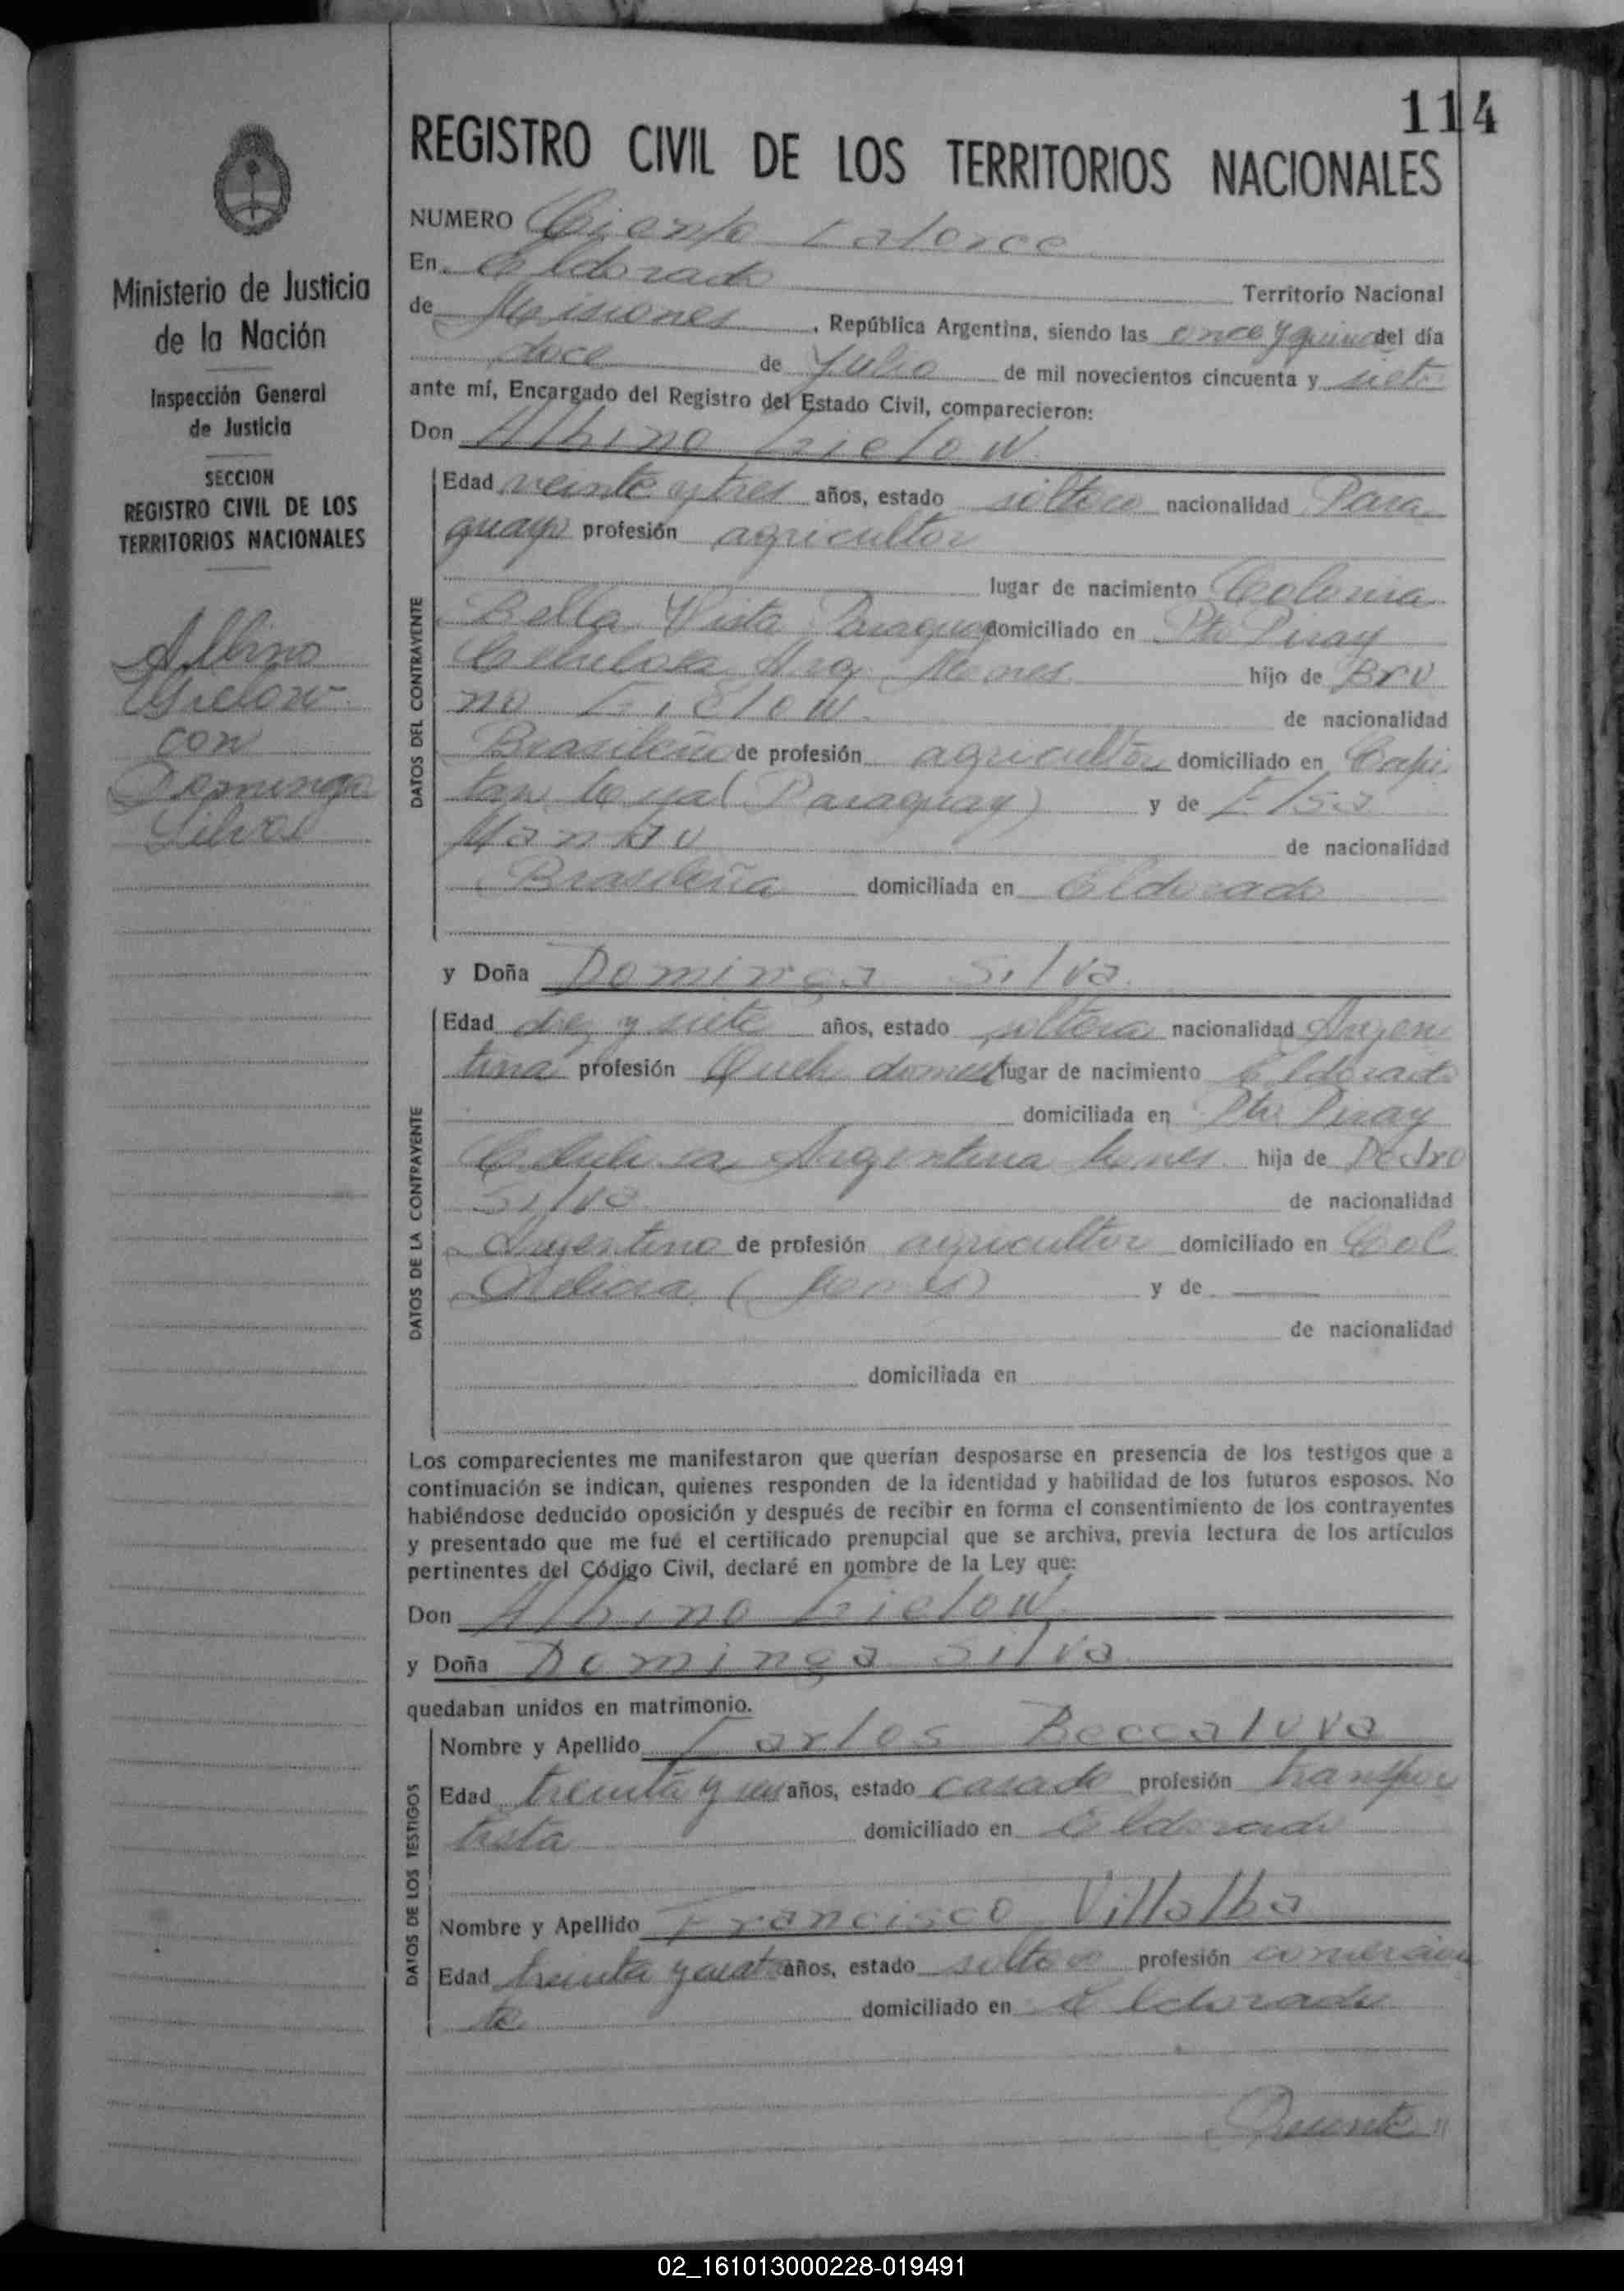 114
REGISTRO CIVIL DE LOS TERRITORIOS NACIONALES
Ministerio de Justicia
de la Nación
Inspección General
de Justicia
SECCION
REGISTRO CIVIL DE LOS
TERRITORIOS NACIONALES
Albino
con
Dominga
Silva
NUMERO Ciento Catorce
En Eldorado Territorio Nacional
de Misiones, República Argentina, siendo las once y quince del día
doce de Julio de mil novecientos cincuenta y siete
ante mí, Encargado del Registro del Estado Civil, comparecieron:
Don Albino
DATOS DEL CONTRAYENTE
Edad veinte y tres años, estado soltero nacionalidad Para
guayo profesión agricultor
lugar de nacimiento Colonia
Bella Vista Paraguay domiciliado en Pto Piray
Celulosa Arg. hijo de Bru
no de nacionalidad
Brasileño de profesión agricultor domiciliado en Capi
tan (Paraguay) y de Elsa
de nacionalidad
Brasileña domiciliada en Eldorado
y Doña Dominga Silva
DATOS DE LA CONTRAYENTE
Edad diez y siete años, estado soltera nacionalidad Argen
tina profesión Queh domest lugar de nacimiento Eldorado
domiciliada en Pto Piray
Celulosa Argentina hija de Pedro
Silva de nacionalidad
Argentino de profesión agricultor domiciliado en Col
Delicia y de
de nacionalidad
domiciliada en
Los comparecientes me manifestaron que querían desposarse en presencia de los testigos que a
continuación se indican, quienes responden de la identidad y habilidad de los futuros esposos. No
habiéndose deducido oposición y después de recibir en forma el consentimiento de los contrayentes
y presentado que me fué el certificado prenupcial que se archiva, previa lectura de los artículos
pertinentes del Código Civil, declaré en nombre de la Ley que:
Don Albino
y Doña Dominga Silva
quedaban unidos en matrimonio.
DATOS DE LOS TESTIGOS
Nombre y Apellido Carlos Beccaluva
Edad treinta y años, estado casado profesión transpor
tista domiciliado en Eldorado
Nombre y Apellido Francisco Villalba
Edad treinta y cuatro años, estado soltero profesión comercian
te domiciliado en Eldorado
02_161013000228-019491